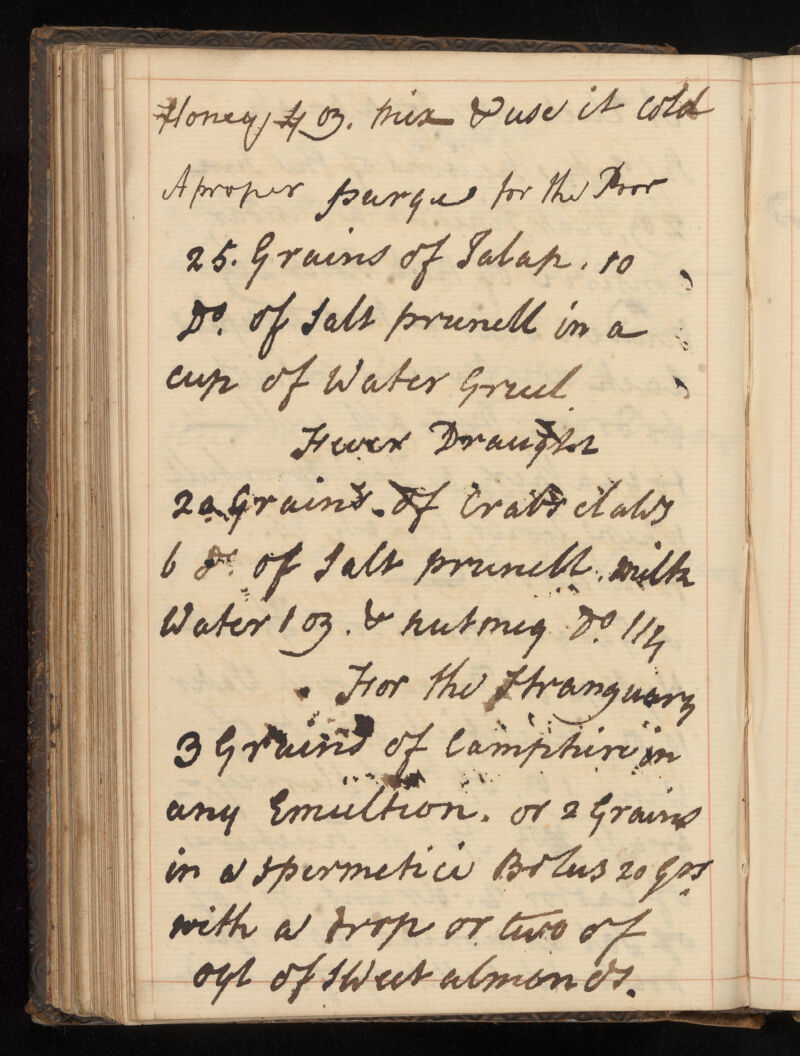 Honey 4 oz. mix & use it cold
A proper purge for the Poor
25. Grains of Jalap. 10
Do. of Salt prunell in a
cup of Water Gruel
Fever Draught
20 Grains. of Crabs claws
6 do. of Salt prunell. milk
Water 1 oz. & nutmeg Do. 1/4
For the Stranguary
3 Grains of Camphire in
any Emultion. or 2 Grains
in a spermetici Bolus 20 Grs
with a drop or two of
oyl of Sweet almonds.